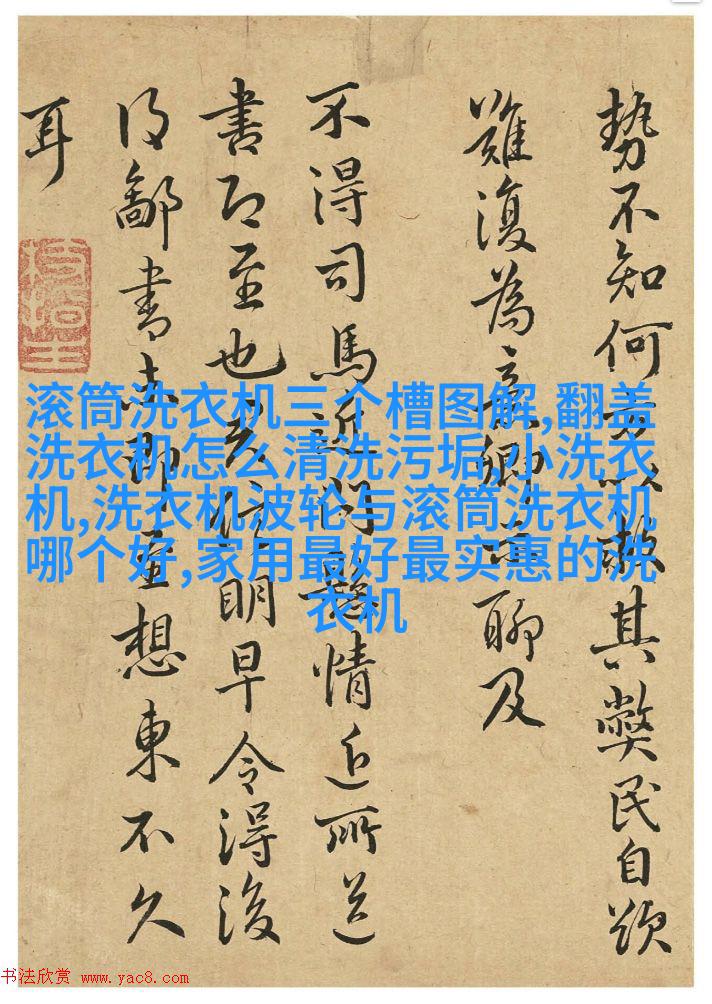 势不知何方以救其弊民自烦
難復為
聊及
不得司馬近
情近所送
書即至也
明早令得後
得鄙書未
至想東不久
耳
滚筒洗衣机三个槽图解,翻盖
洗衣机怎么清洗污垢,小洗衣
机,洗衣机波轮与滚筒洗衣机
哪个好,家用最好最实惠的洗
衣机
书法欣赏 www.yac8.com